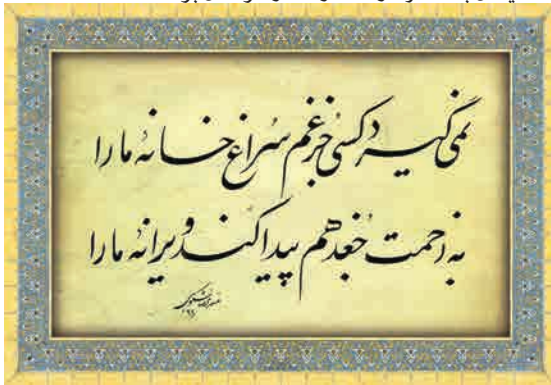 نمی گیرد کسی جز غم سراغ خانه ما را
به زحمت جغد هم پیدا کند ویرانه ما را